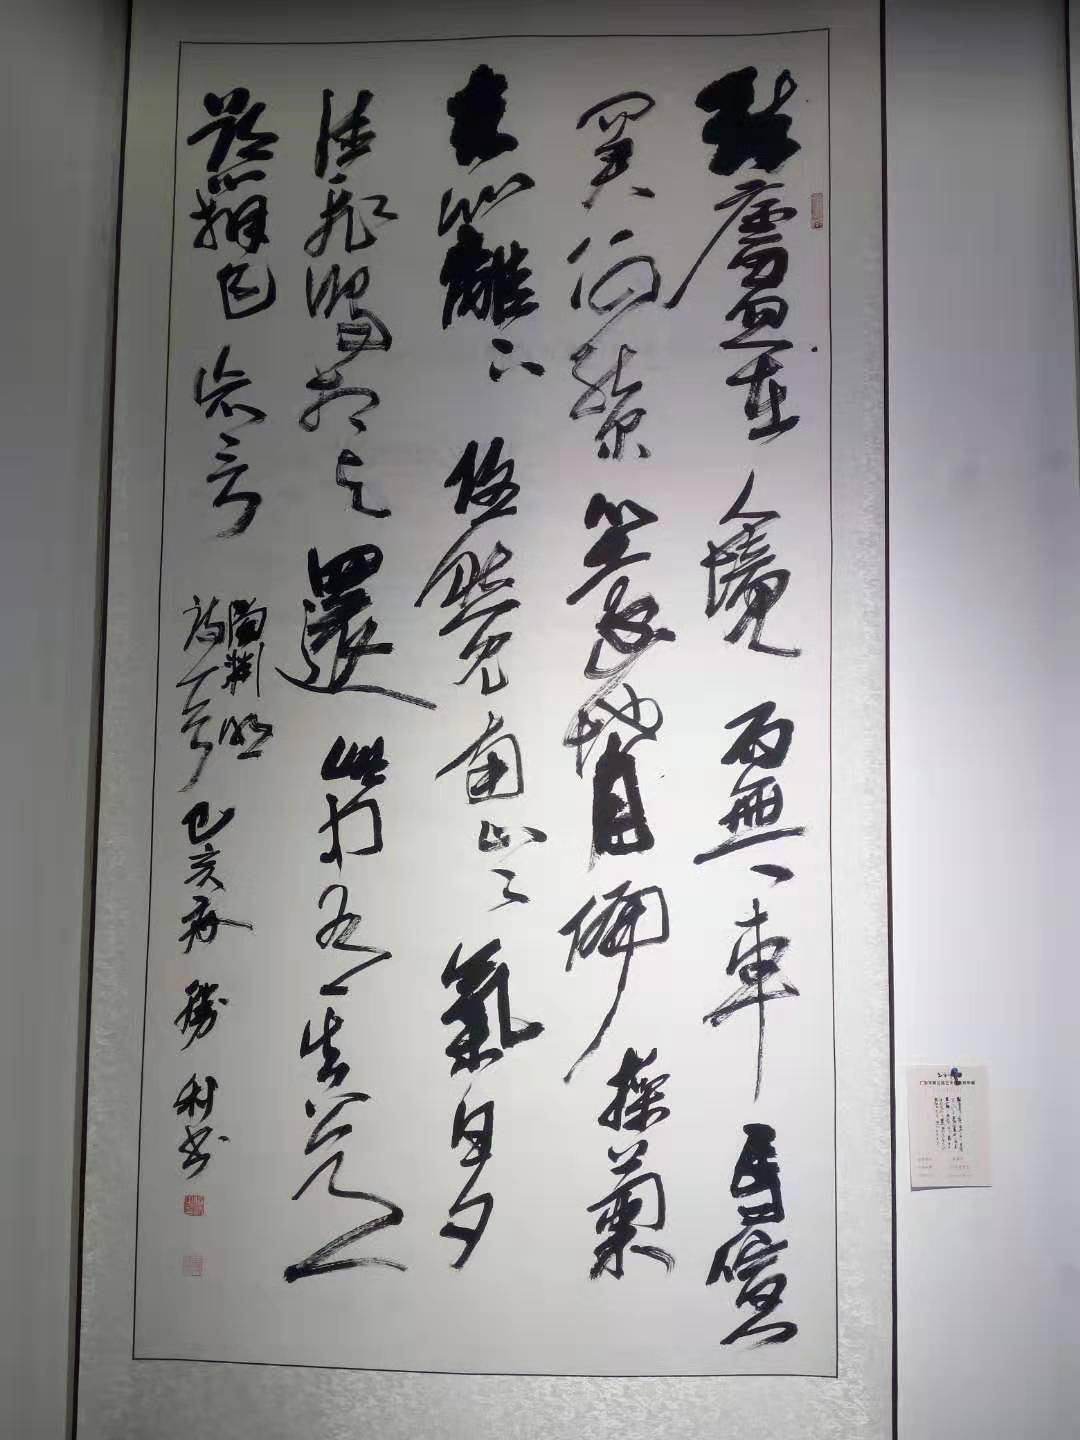 結廬在人境而無車馬喧
問君何能爾心遠地自偏採菊
東籬下悠然見南山山氣日夕
佳飛鳥相與還此中有真意
欲辯已忘言
陶淵明
詩一首己亥春勝利书